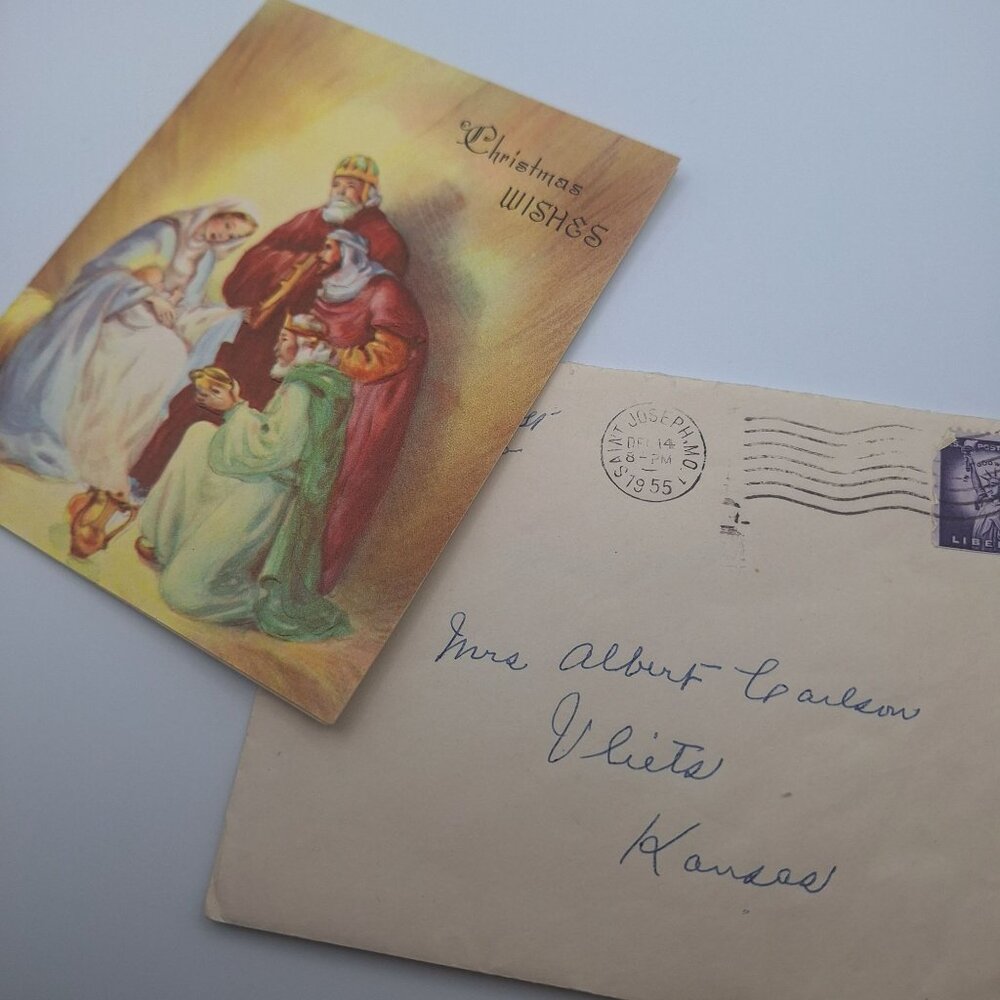 Christmas
WISHES
st
SAINT JOSEPH, MO.
DEC 14
8-PM
1955
POST
LIBE
Mrs Albert Carlson
Vliets
Kansas